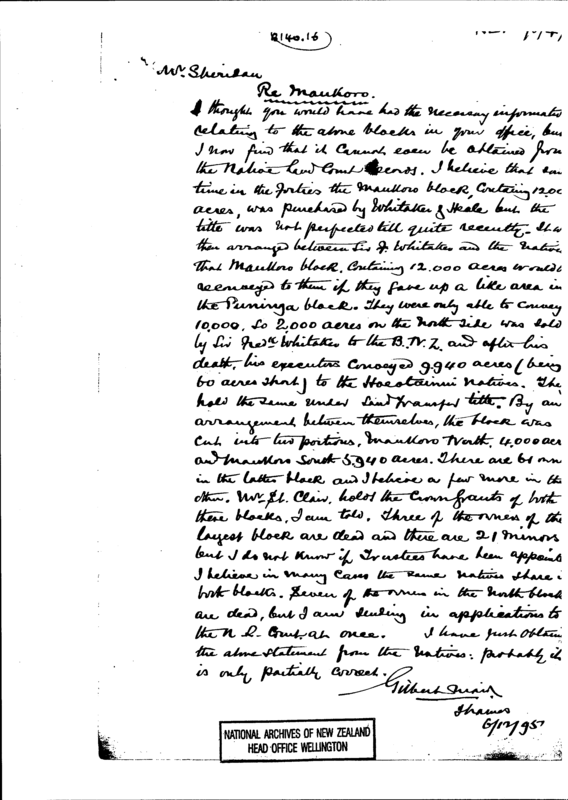 2140.16
Mr. Sheridan
Re Maukoro.
I thought you would have had the necessary informatio
relating to the above blocks in your office, but
I now find that it cannot even be obtained from
the Native Land Court records. I believe that som
time in the forties the Maukoro block, containing 12.00
acres, was purchased by Whitaker & Heale but the
title was not perfected till quite recently. It w
then arranged between Sir F. Whitaker and the Native
that Maukoro block, containing 12.000 acres would
reconveyed to them if they gave up a like area in
the Puninga block. They were only able to convey
10,000, so 2,000 acres on the North side was sold
by Sir Fredk. Whitaker to the B.N.Z. and after his
death, his executors conveyed 9.940 acres (being
60 acres short) to the Hocotainui natives. The
hold the same under Land Transfer title. By an
arrangement between themselves, the block was
cut into two portions, Maukoro North, 4,000 acr
and Maukoro South 5,940 acres. There are 61 own
in the latter block and I believe a few more in the
other. Mr. St. Clair, holds the Crown Grants of both
these blocks, I am told. Three of the owners of the
largest block are dead and there are 21 minors
but I do not know if Trustees have been appoint
I believe in many cases the same natives share i
both blocks. Seven of the owners in the North block
are dead, but I am sending in applications to
the N. L. Court at once. I have just obtain
the above statement from the natives: probably it
is only partially correct.
Gilbert Mair
Thames
6/12/95
NATIONAL ARCHIVES OF NEW ZEALAND
HEAD OFFICE WELLINGTON